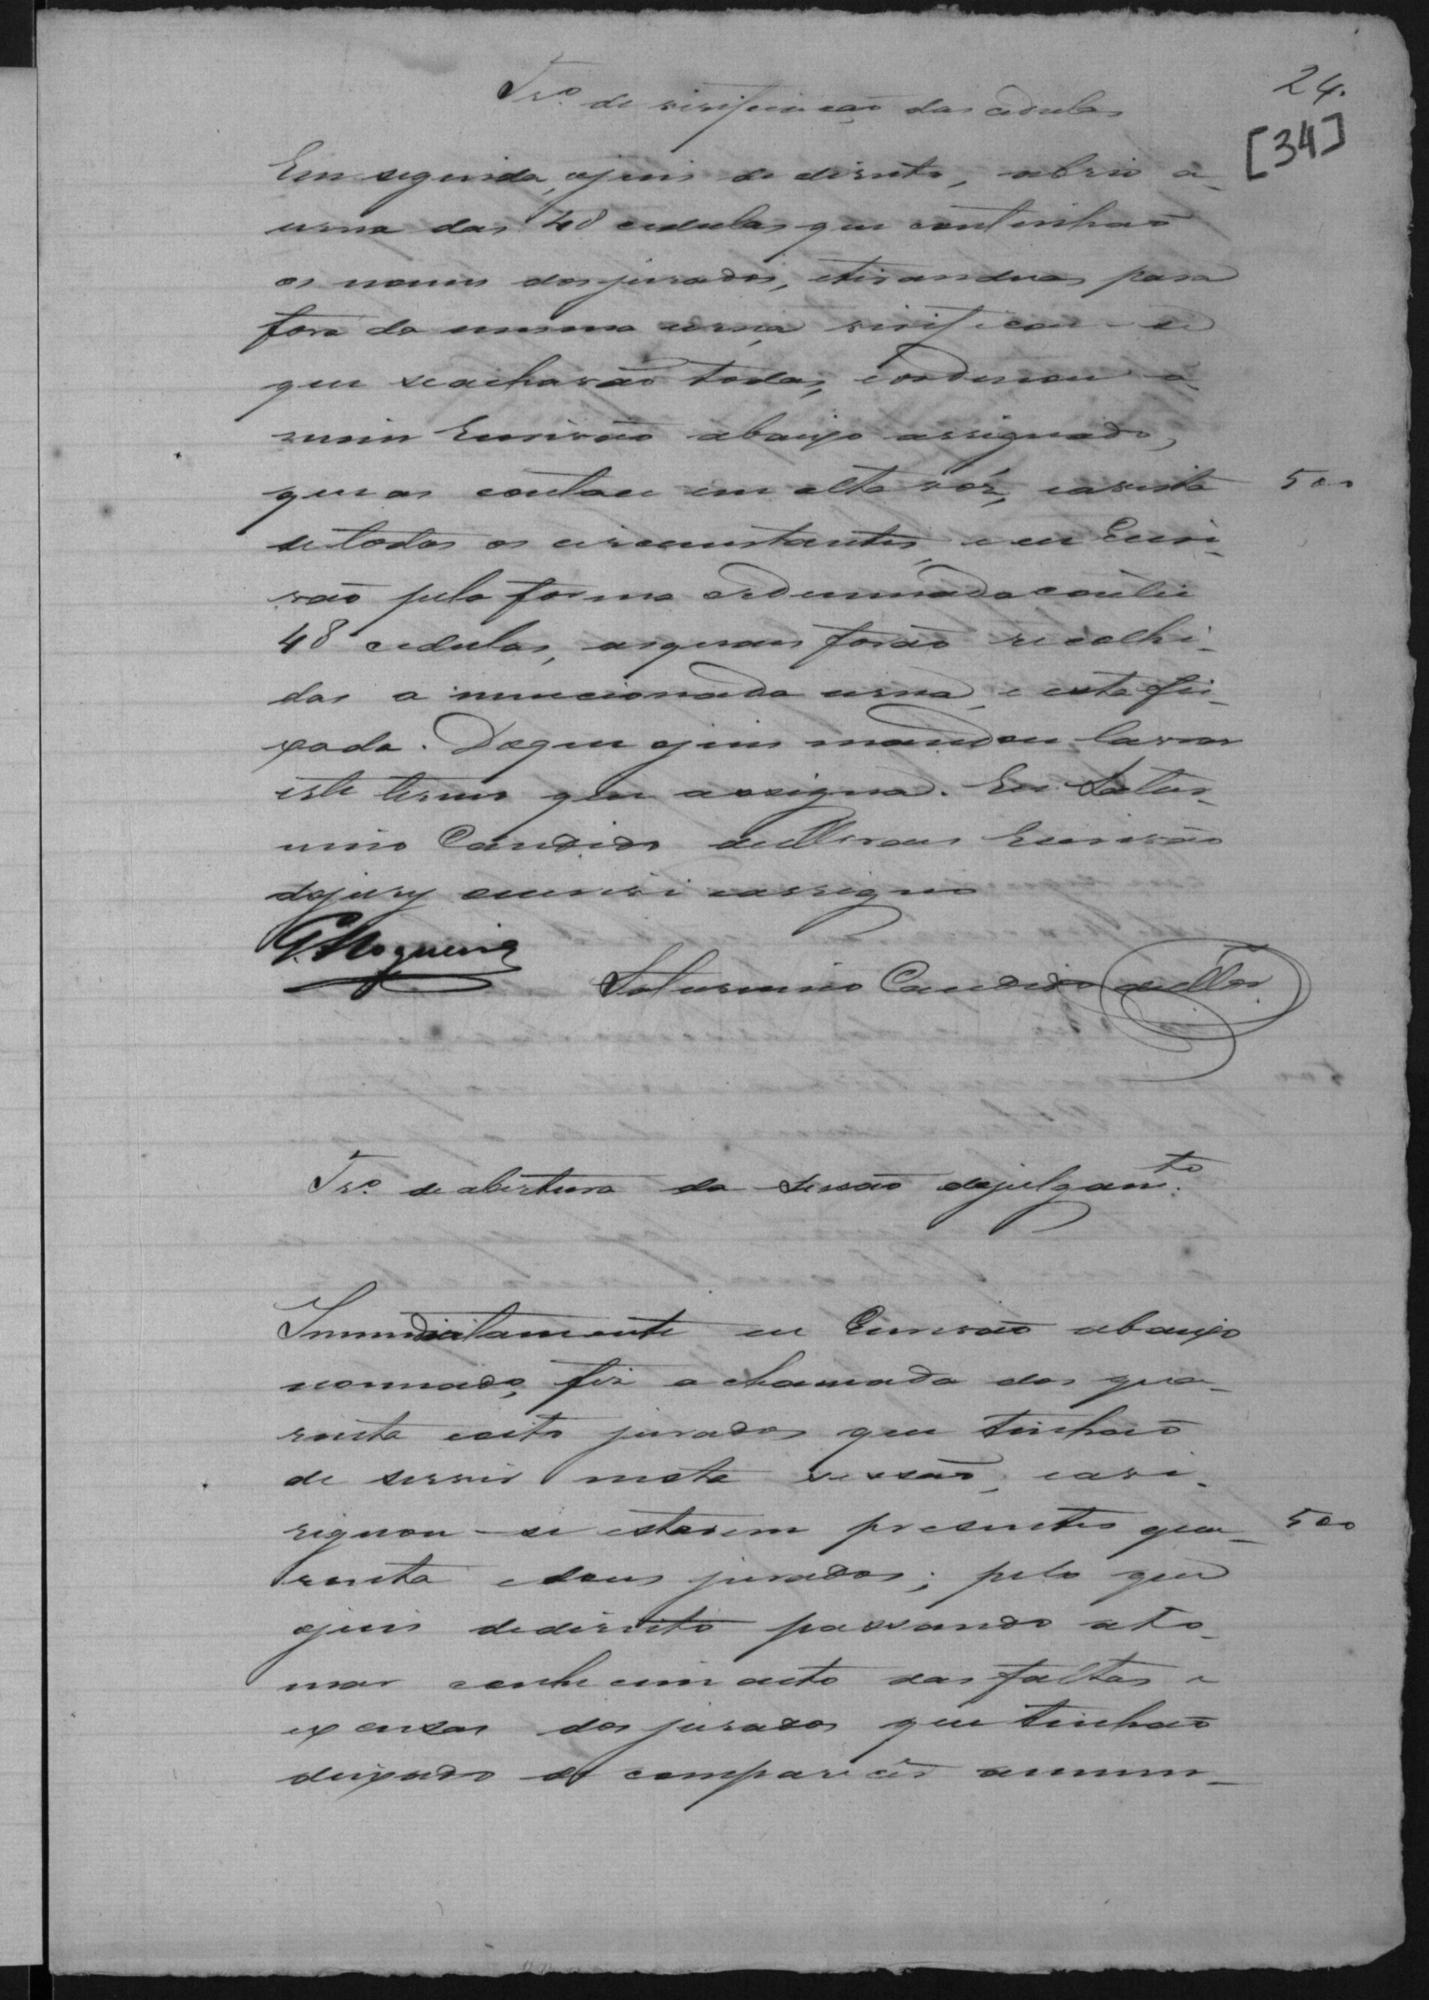 24.
[34]
Tro. de virificação das cedulas
Em seguida, ojuis de direito, abrio a
urna das 48 cedulas que continhaõ
os nomes dosjurados, etirandoas para
fora da mesma urna virificou-se
que seacharaõ todas, eordenou a
mim Escrivaõ abaixo assignado,
queas contace em alta voz, eavista
detodos os circunstantes, e eu Escri-
vaõ pela forma ordennada contei
48 cedulas, asquaes foraõ recolhi-
das a mencionada urna, e esta fei-
xada. Doque ojuis mandou lavrar
este termo que assigna. Eu Satur-
nino Candido deMoraes Escrivaõ
dojury escrevi eassigno
500
G. Nogueira
Saturnino Candido deMes.
Tro. de abertura da sessaõ dejulgamto.
Immediatamente eu Escrivaõ abaixo
nomiado, fiz a chamada dos qua-
renta eoito jurados que tinhaõ
de servir nesta sessaõ, eave-
riguou-se estarem presentes qua-
500
renta edous jurados; pelo que
ojuis dedireito passando ato-
mar conhecimento das faltas e
excusas dos jurados que tinhaõ
deixado de comparecer